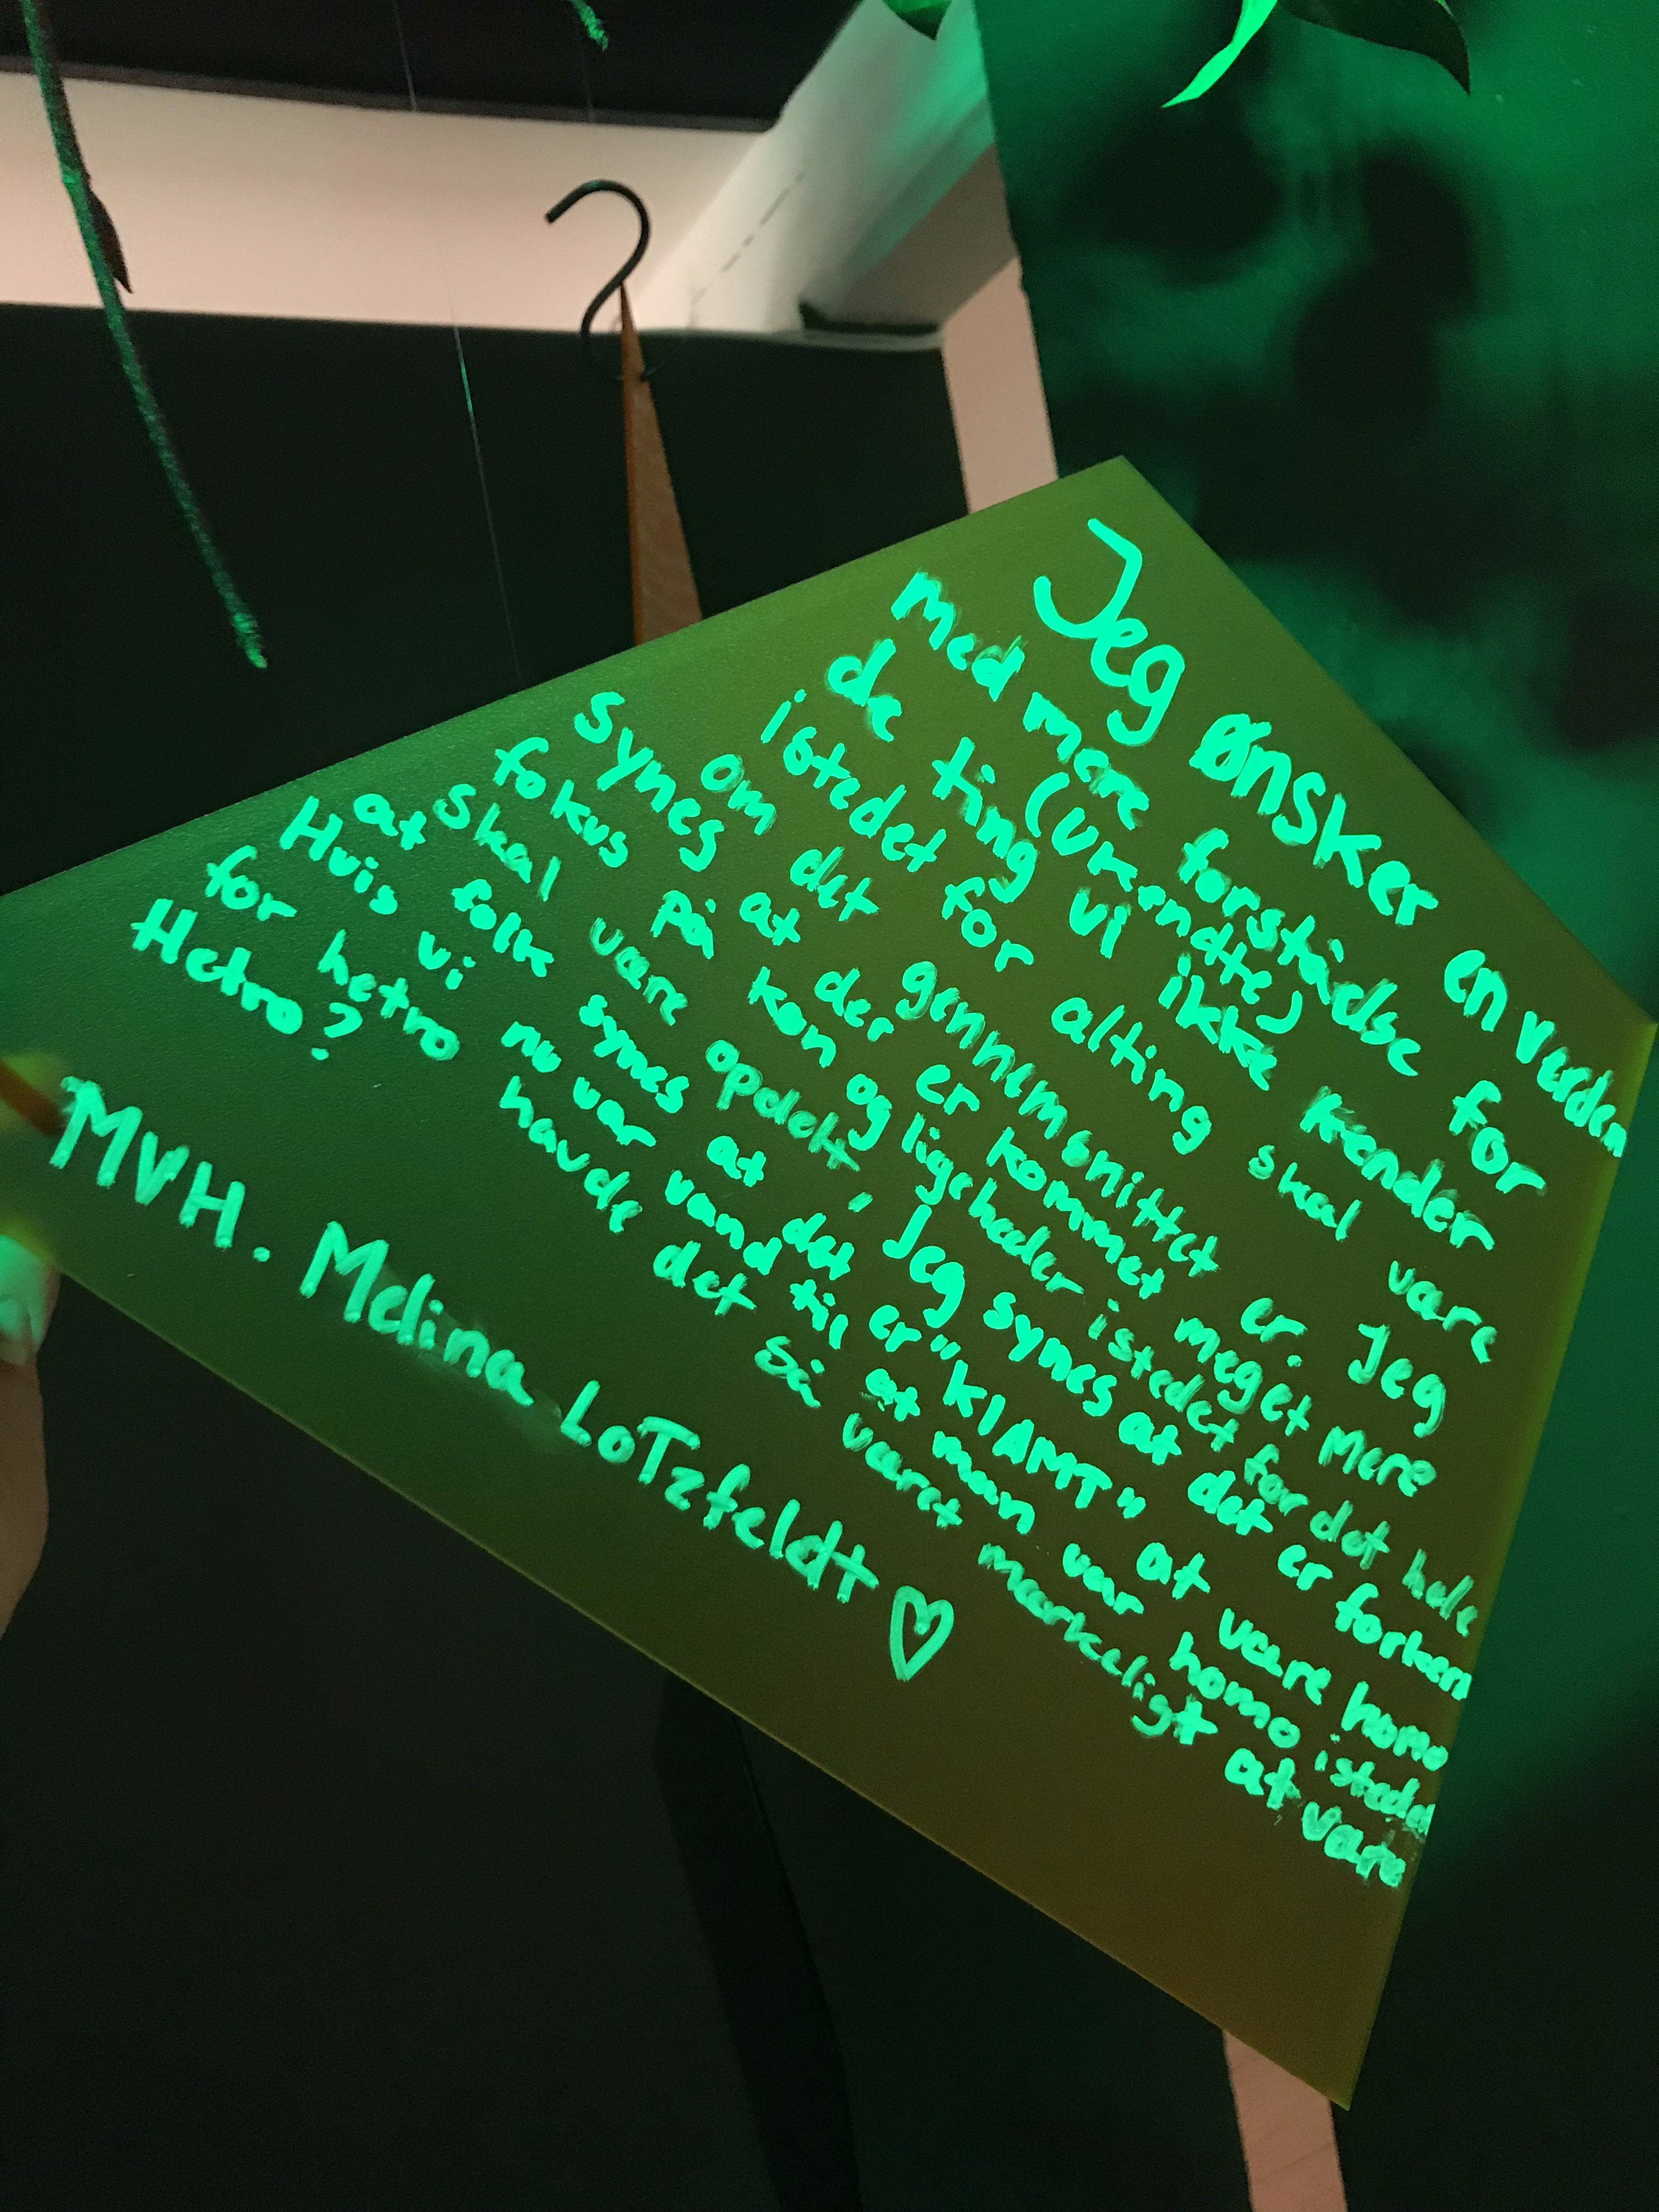 Jeg Ønsker en verden
med mere forståelse for
(Ukendte)
de ting vi ikke kender
istedet for alting skal være
om det gennemsnittet er. Jeg
synes at der er kommet meget mere
fokus på køn og ligeheder istedet for det hele
skal være opdelt, Jeg synes at det er forkert
at folk synes at det er "KLAMT" at være homo
Hvis vi nu var vand til at man var homo istedet
for hetro havde det så været mærkeligt at være
Hetro?
MVH. Melina LoTzfeldt ♡